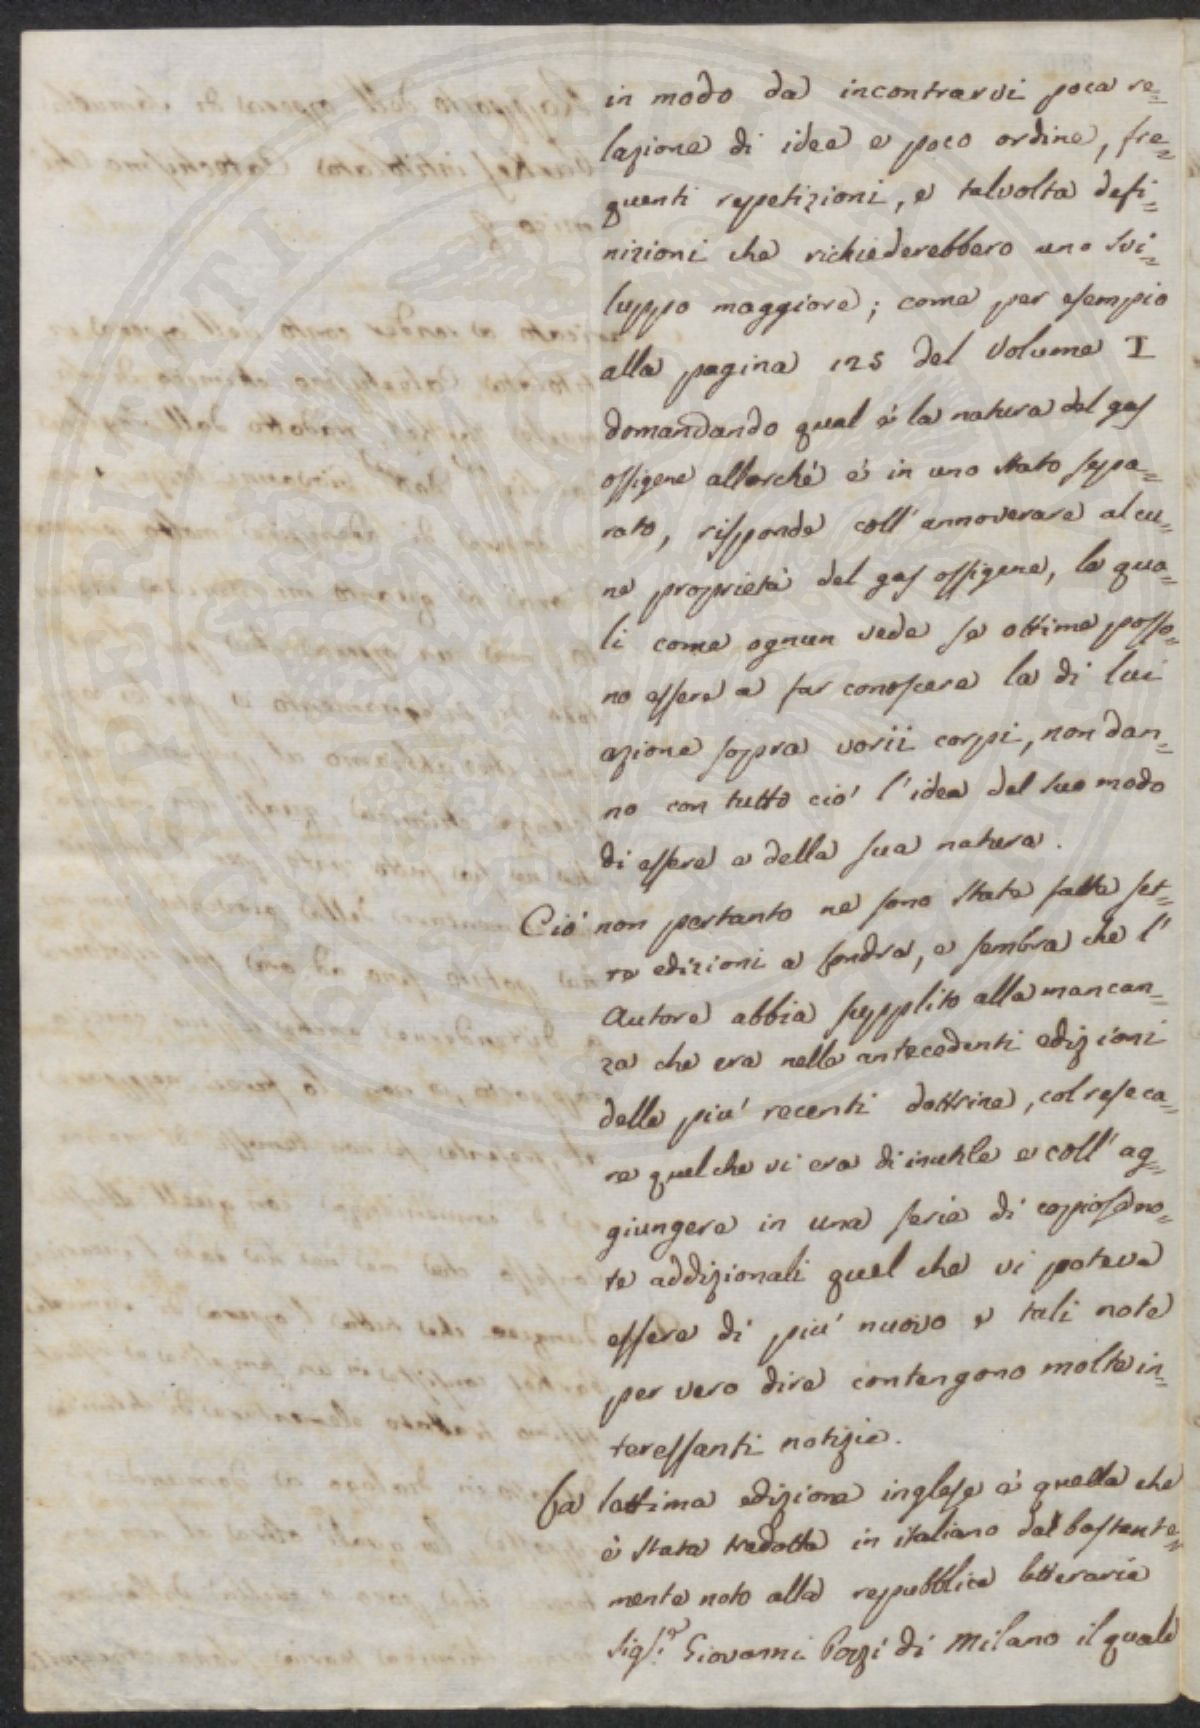 in modo da incontrarvi poca re=
lazione di idee e poco ordine, fre=
quenti repetizioni, e talvolta defi=
nizioni che richiederebbero uno svi=
luppo maggiore; come per esempio
alla pagina 125 del Volume I
domandando qual è la natura del gas
ossigene allorché è in uno stato sepa=
rato, risponde coll'annoverare alcu=
ne proprietà del gas ossigene, le qua=
li come ognun vede se ottime posso=
no essere a far conoscere la di lui
azione sopra varii corpi, non dan=
no con tutto ciò l'idea del suo modo
di essere e della sua natura.
Ciò non pertanto ne sono state fatte set=
te edizioni a Londra, e sembra che l'
Autore abbia supplito alla mancan=
za che era nelle antecedenti edizioni
delle più recenti dottrine, col reseca=
re quel che vi era di inutile e coll'ag=
giungere in una serie di copiose no=
te addizionali quel che vi poteva
essere di più nuovo e tali note
per vero dire contengono molte in=
teressanti notizie.
La settima edizione inglese è quella che
è stata tradotta in italiano dal bastante=
mente noto alla repubblica letteraria
Sig.r Giovanni Pozzi di Milano il quale